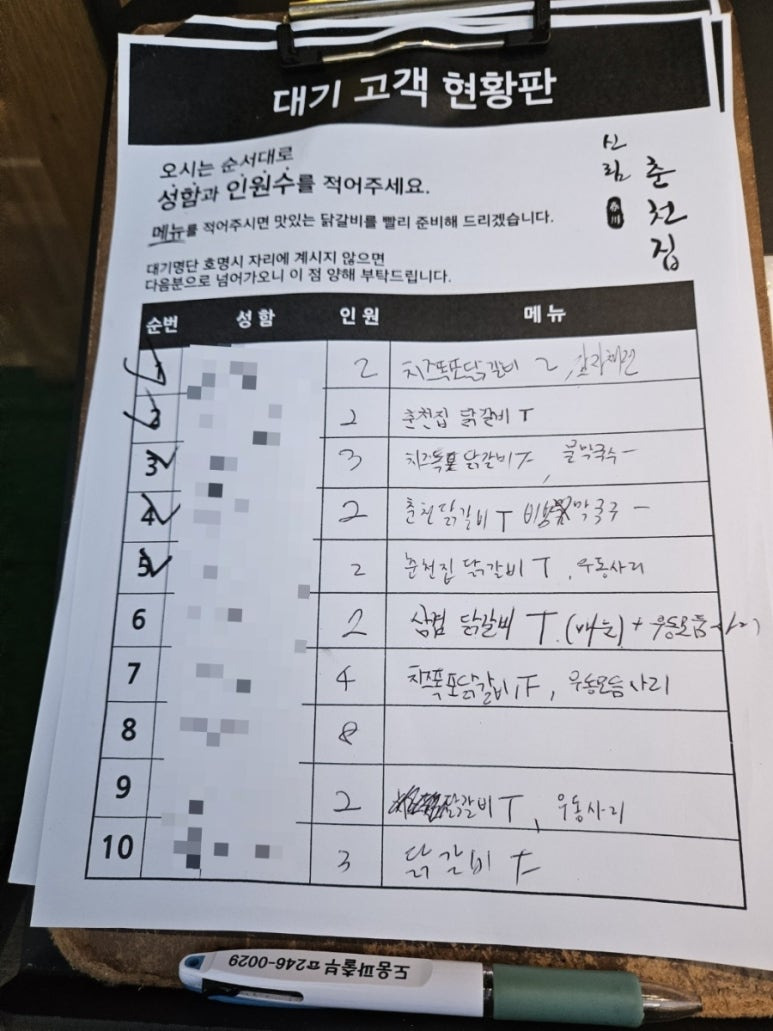 대기 고객 현황판
오시는 순서대로
성함과 인원수를 적어주세요.
메뉴를 적어주시면 맛있는 닭갈비를 빨리 준비해 드리겠습니다.
대기명단 호명시 자리에 계시지 않으면
다음분으로 넘어가오니 이 점 양해 부탁드립니다.
산림
春川
춘천집
순번 성함 인원 메뉴
1 2 치즈폭포닭갈비 2, 감자채전
2 2 춘천집 닭갈비 T
3 3 치즈폭포 닭갈비 下, 물막국수 一
4 2 춘천닭갈비 T 막국수 一
5 2 춘천집 닭갈비 T, 우동사리
6 2 삼겹 닭갈비 T. (매눈) + 우동모듬사리
7 4 치즈폭포닭갈비, 下, 우동모듬사리
8 8
9 2 닭갈비 T, 우동사리
10 3 닭갈비
도움파출부☎246-0029